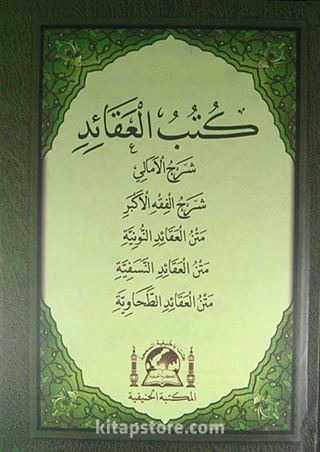 كُتُبُ الْعَقَائِدِ
شَرْحُ الْأَمَالِي
شَرْحُ الْفِقْهِ الْأَكْبَرِ
مَتْنُ الْعَقَائِدِ النُّونِيَّةِ
مَتْنُ الْعَقَائِدِ النَّسَفِيَّةِ
مَتْنُ الْعَقَائِدِ الطَّحَاوِيَّةِ
المكتبة الحنيفية
kitapstore.com